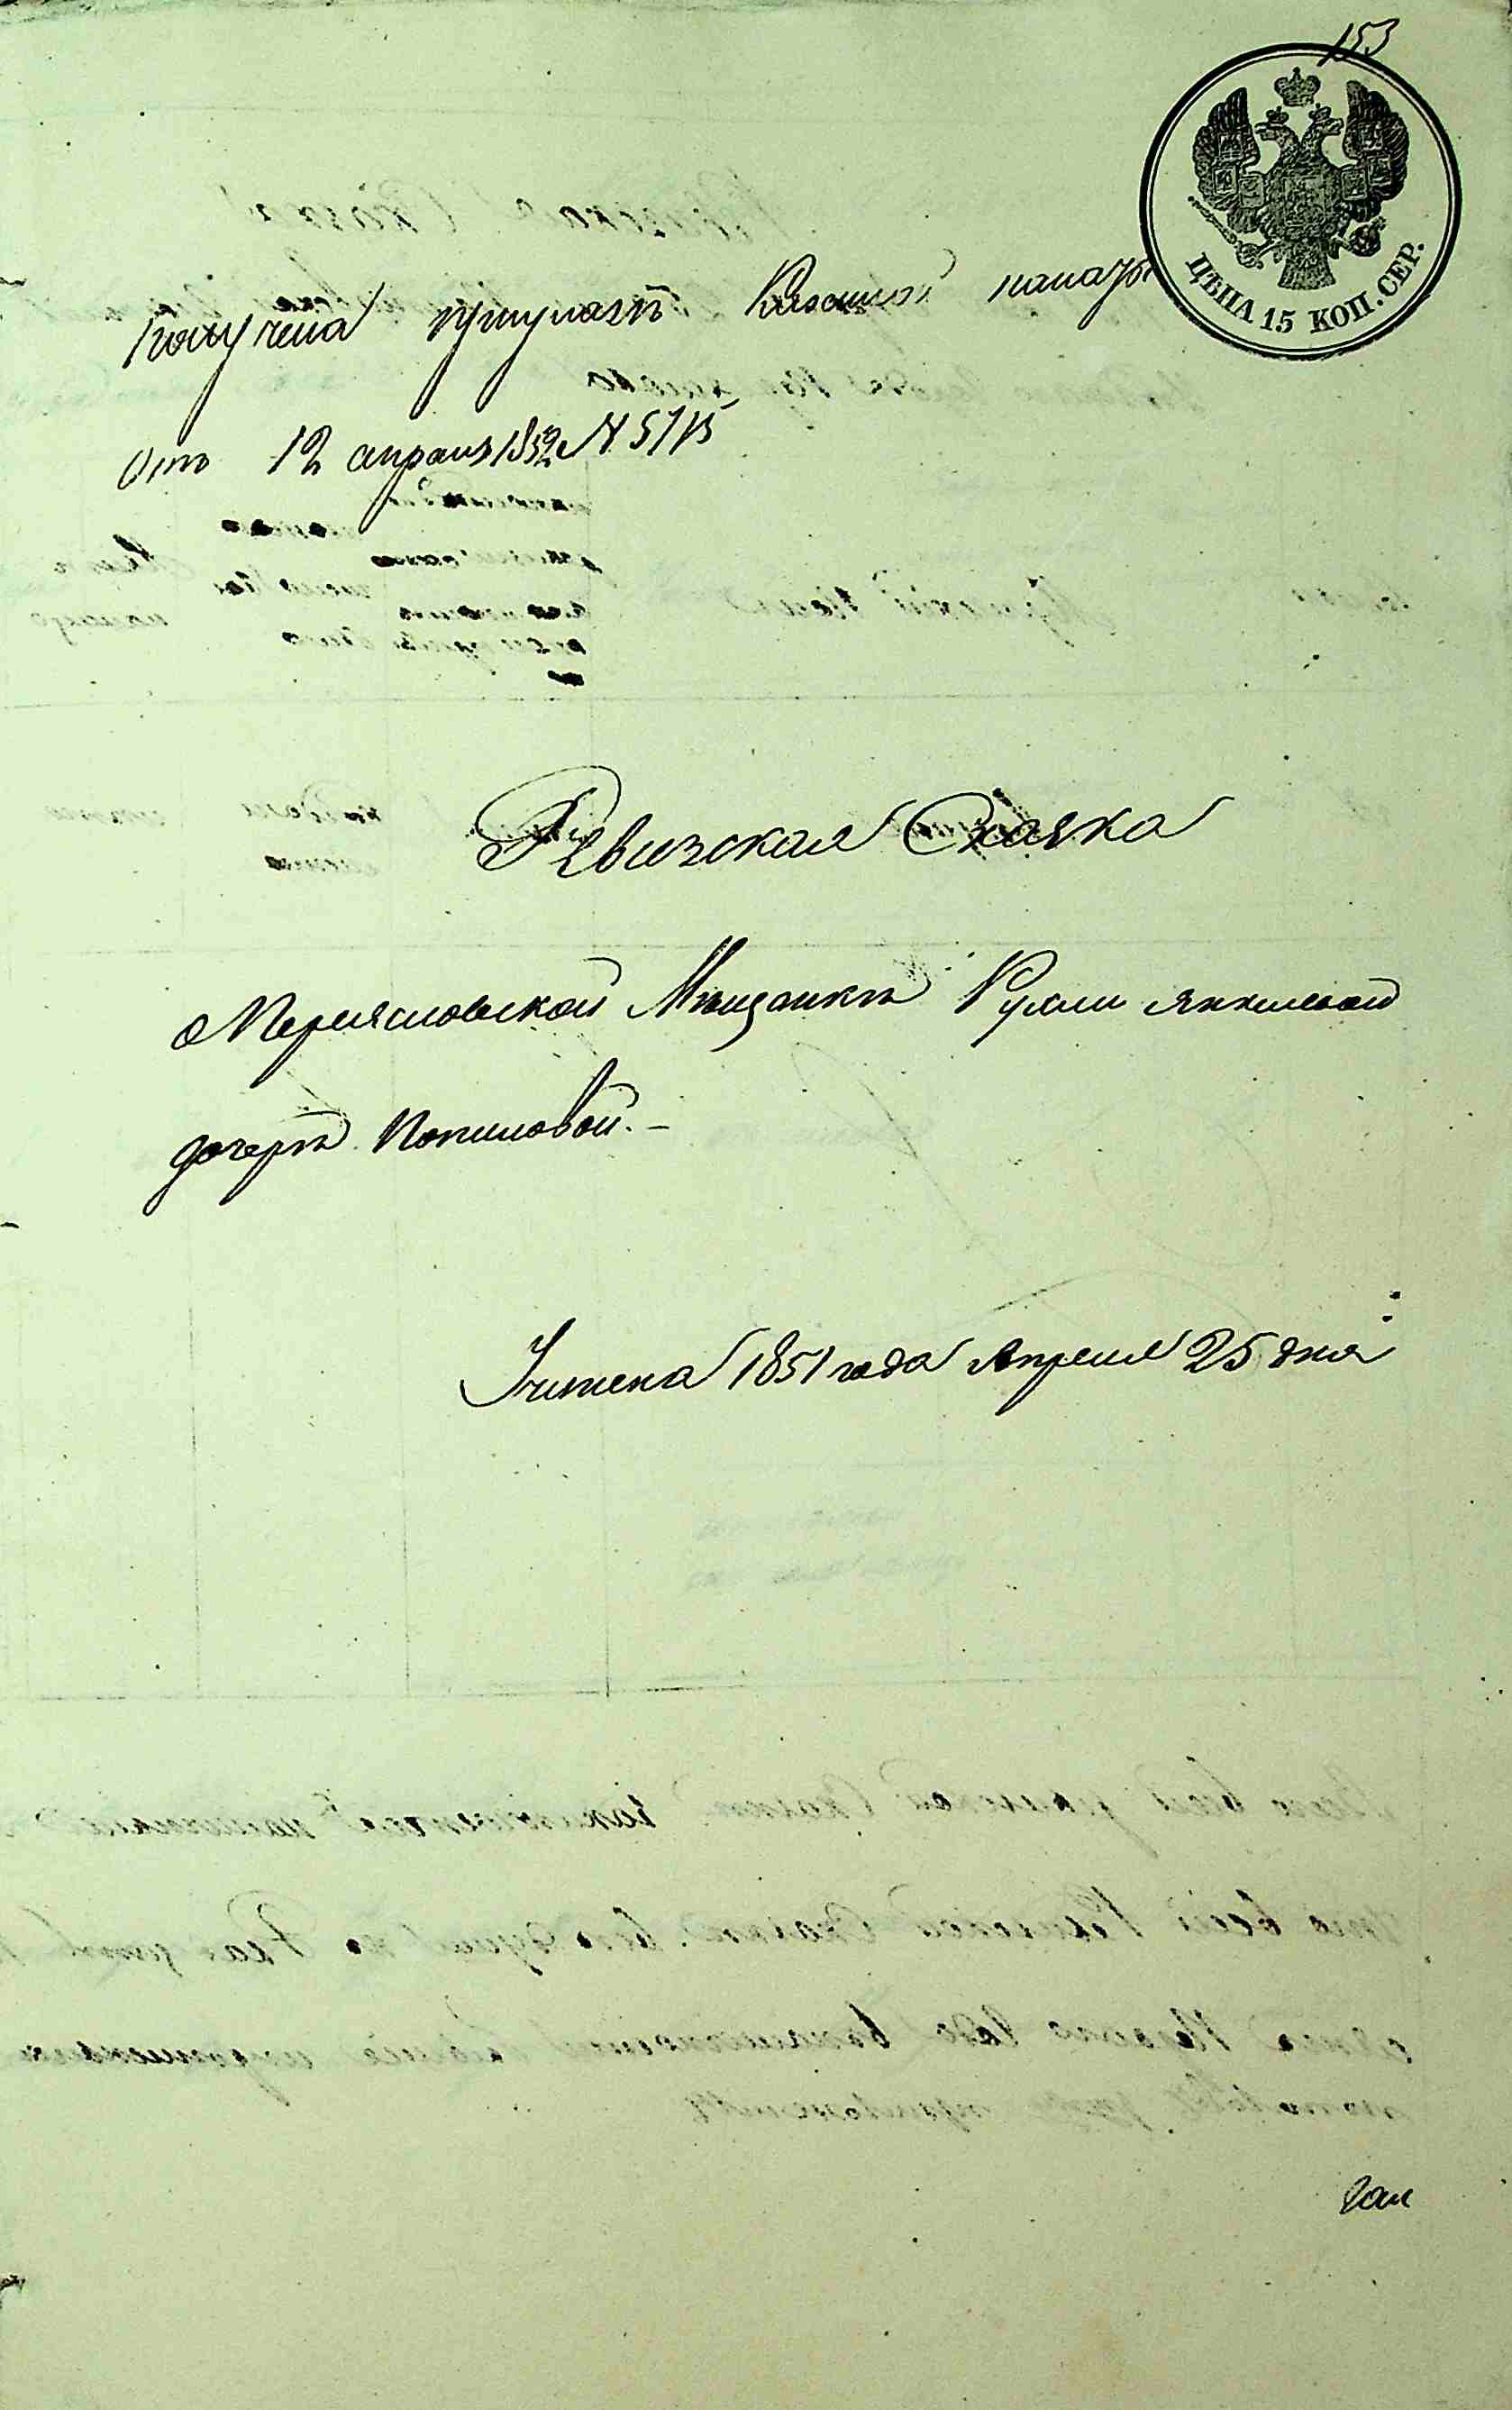 153
ЦѢНА 15 КОП. СЕР.
Получена при указѣ Казенной палаты
Отъ 12 апрѣля 1852 N 5715
Ревизская Сказка
о Переясловской Мѣщанкѣ Рухли Янкелевой
дочерѣ Копиловой. –
Учинена 1851 года Апреля 25 дня